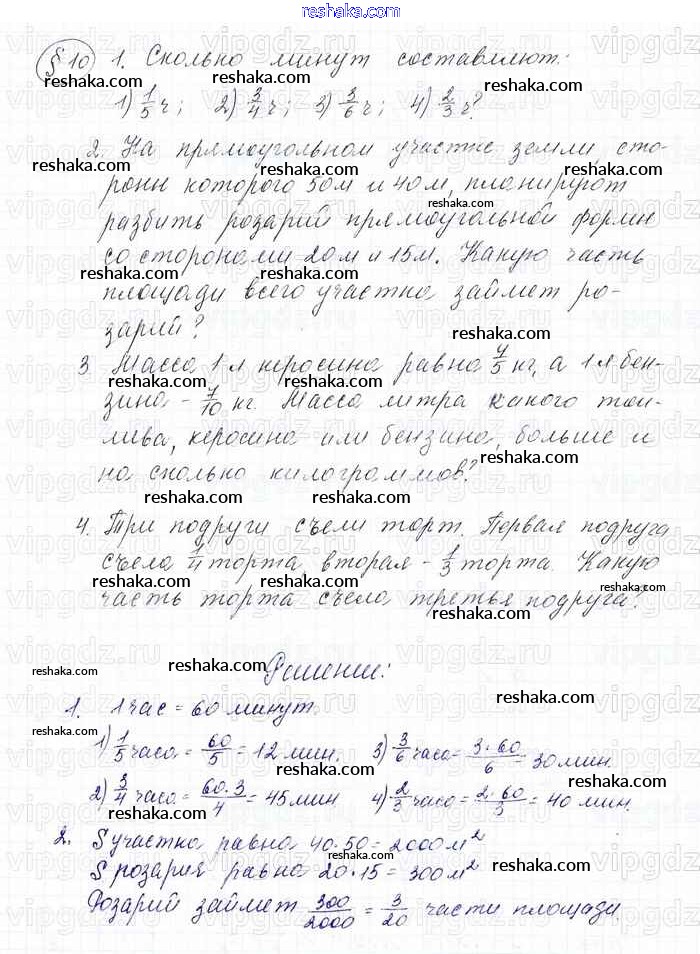 reshaka.com
§10 1. Сколько минут составляют:
reshaka.com reshaka.com
1) 1/5 ч; 2) 3/4 ч; 3) 3/6 ч; 4) 2/3 ч?
reshaka.com reshaka.com reshaka.com
2. На прямоугольном участке земли, сто-
reshaka.com reshaka.com reshaka.com
роны которого 50 м и 40 м, планируют
reshaka.com
разбить розарий прямоугольной формы
со сторонами 20 м и 15 м. Какую часть
reshaka.com reshaka.com reshaka.com
площади всего участка займет ро-
зарий?
reshaka.com
3. Масса 1 л керосина равна 4/5 кг, а 1 л бен-
reshaka.com reshaka.com
зина - 7/10 кг. Масса литра какого топ-
reshaka.com
лива, керосина или бензина, больше и
reshaka.com reshaka.com
на сколько килограммов?
reshaka.com reshaka.com
4. Три подруги съели торт. Первая подруга
reshaka.com reshaka.com
съела 1/4 торта, вторая - 1/3 торта. Какую
reshaka.com reshaka.com reshaka.com
часть торта съела третья подруга?
reshaka.com reshaka.com reshaka.com
Решение:
reshaka.com reshaka.com
1. 1 час = 60 минут.
reshaka.com
1) 1/5 часа = 60/5 = 12 мин. 3) 3/6 часа = 3·60/6 = 30 мин.
reshaka.com reshaka.com
2) 3/4 часа = 60·3/4 = 45 мин 4) 2/3 часа = 2·60/3 = 40 мин.
reshaka.com reshaka.com
2. S участка равна 40·50 = 2000 м²
reshaka.com
S розария равна 20·15 = 300 м²
reshaka.com reshaka.com
Розарий займет 300/2000 = 3/20 части площади.
reshaka.com reshaka.com